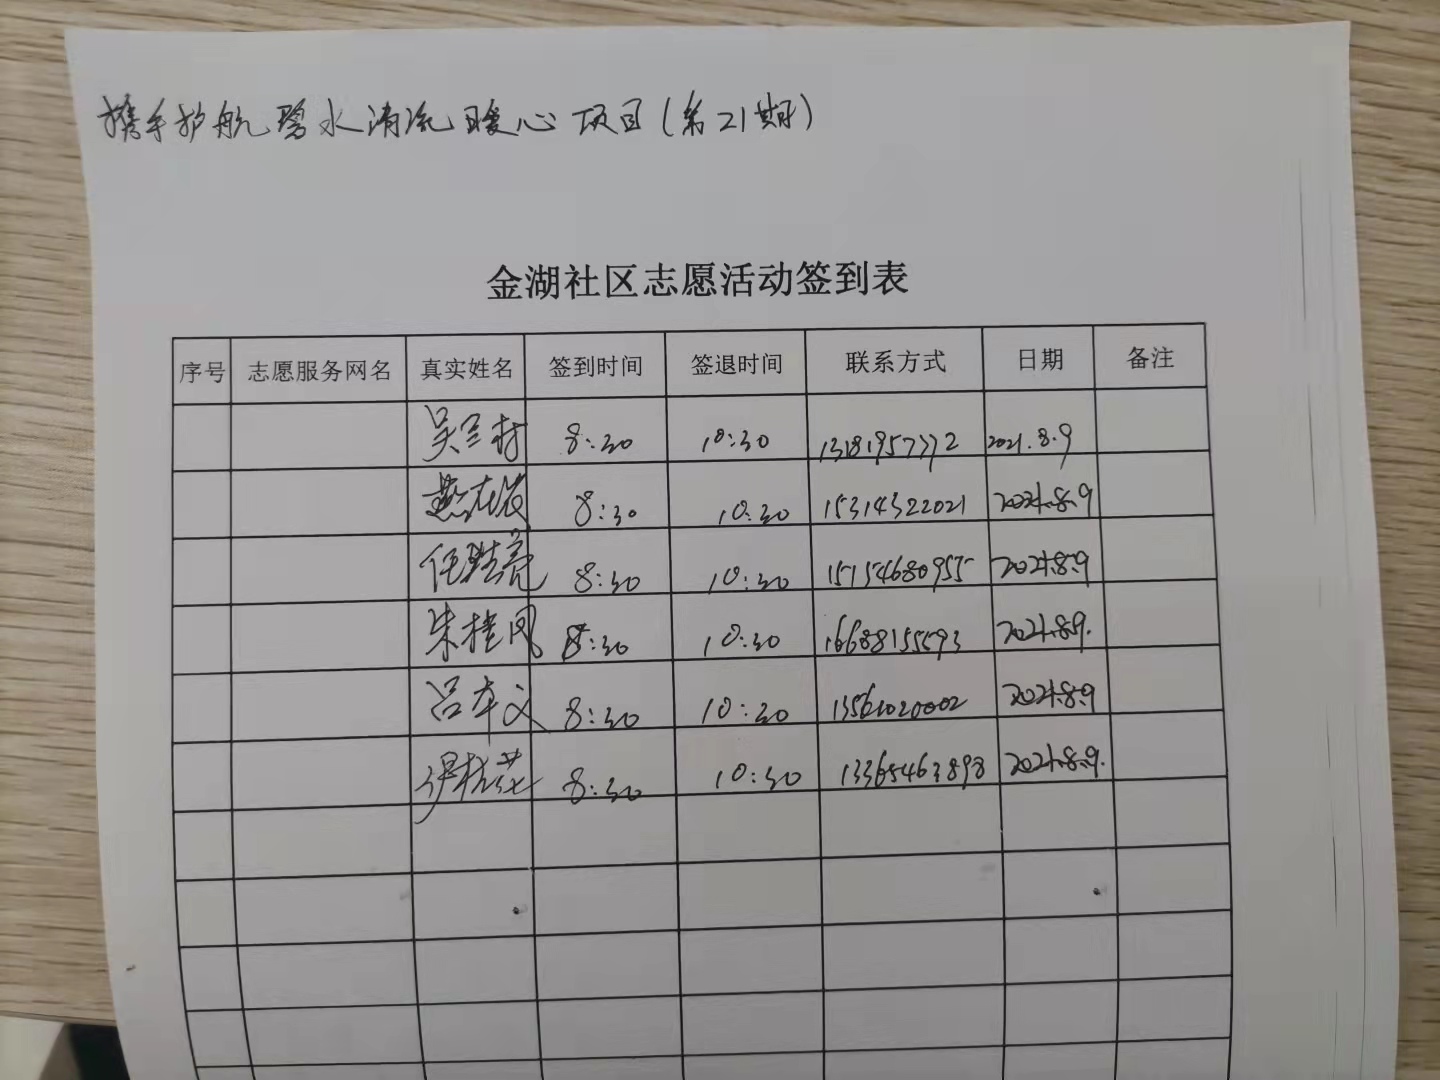 携手护航碧水清流暖心项目(第21期)
金湖社区志愿活动签到表
序号 志愿服务网名 真实姓名 签到时间 签退时间 联系方式 日期 备注
吴兰村 8:30 10:30 13181957772 2021.8.9
8:30 10:30 15314322021 2021.8.9
任璡亮 8:30 10:30 15154680955 2021.8.9
朱桂凤 8:30 10:30 16688155593 2021.8.9.
吕本义 8:30 10:30 13561020002 2021.8.9
8:30 10:30 13365463898 2021.8.9.